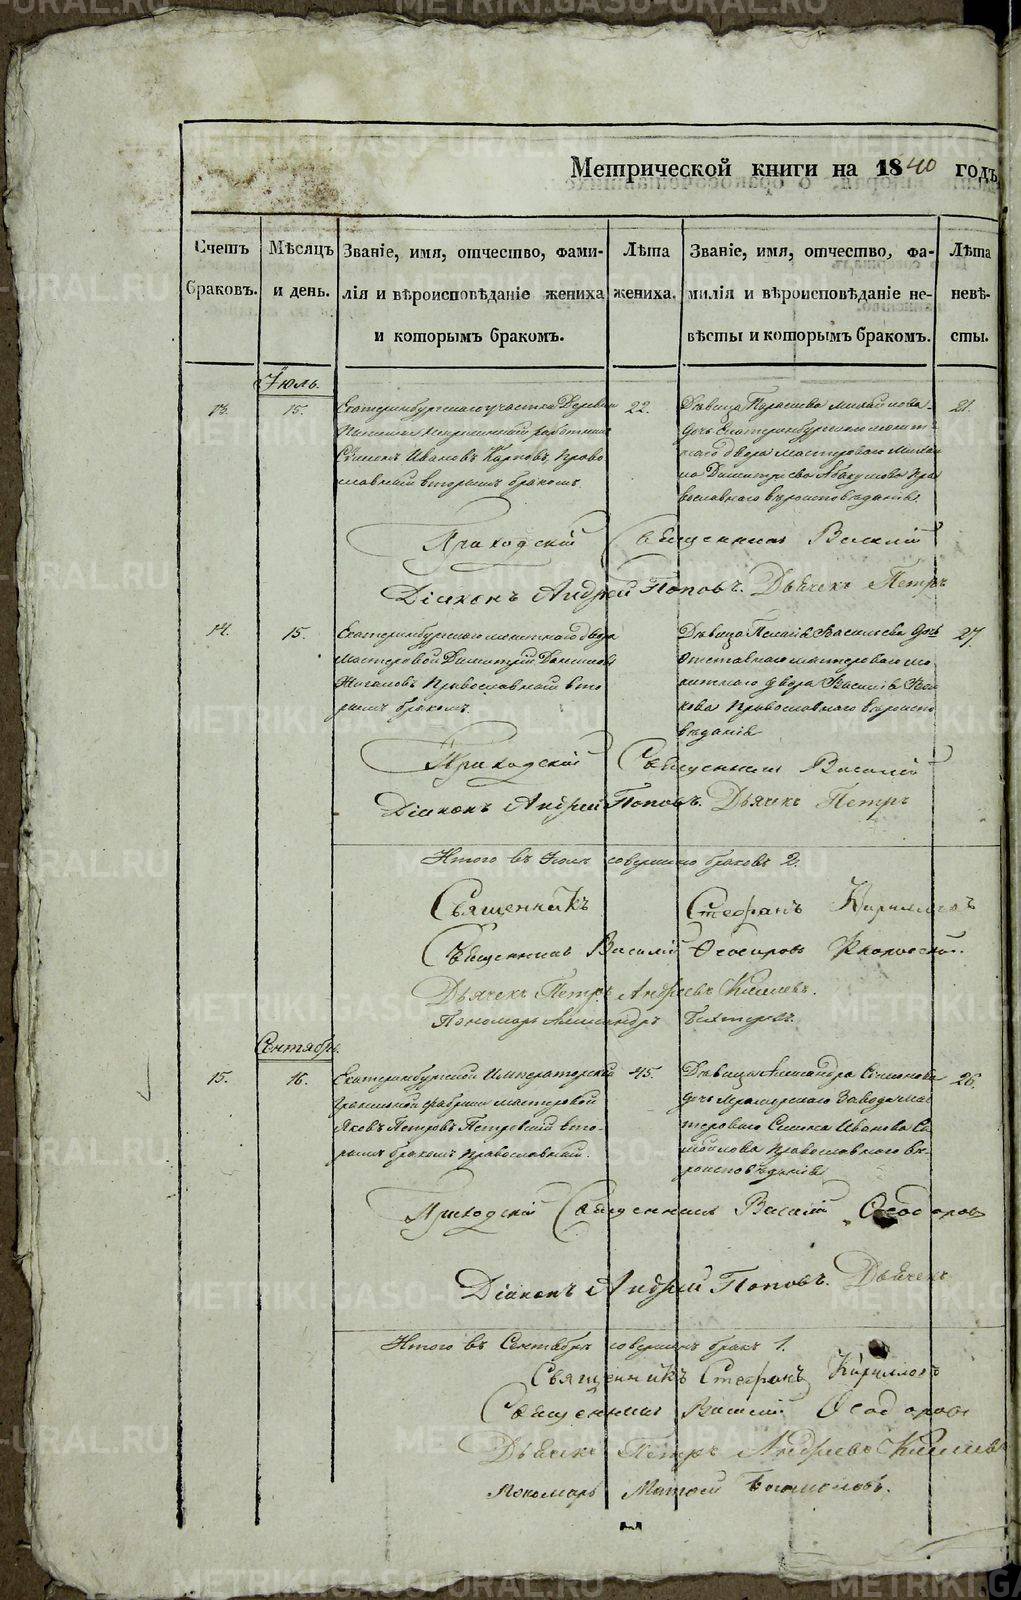 Метрической книги на 1840 годъ,
Счетъ браковъ.
Мѣсяцъ и день.
Званіе, имя, отчество, фами-
лія и вѣроисповѣданіе жениха
и которымъ бракомъ.
Лѣта жениха.
Званіе, имя, отчество, фа-
милія и вѣроисповѣданіе не-
вѣсты и которымъ бракомъ.
Лѣта невѣ-
сты.
Іюль.
13.
15.
Екатеринбургскаго участка Деревни
работникъ
Симеонъ Ивановъ Карповъ, Право-
славный вторымъ бракомъ.
22.
Дѣвица Параскева Михайлова
дочь Екатеринбургскаго монет-
наго двора мастероваго Михаи-
ла Димитріева Абакумова Пра
вославнаго вѣроисповѣданія.
21.
Приходскій Священникъ Василій
Діаконъ Андрей Поповъ. Дьячекъ Петръ
14.
15.
Екатеринбургскаго монетнаго двора
мастеровой Димитрій Даниловъ
Жигаловъ Православный вто
рымъ бракомъ.
Дѣвица Пелагія Васильева дочь
Отставнаго мастероваго мо
нетнаго двора Василія
Православнаго вѣроиспо
вѣданія
27.
Приходскій Священникъ Василій
Діаконъ Андрей Поповъ. Дьячекъ Петръ
Итого въ Іюлѣ совершено браковъ 2.
Священникъ Стефанъ Кирилловъ
Священникъ Василій Ѳеодоровъ
Дьячекъ Петръ Андреевъ Киселевъ.
Пономарь Александръ
Сентябрь.
15.
16.
Екатеринбургской Императорской
Гранильной фабрики мастеровой
Яковъ Петровъ Петровскій вто-
рымъ бракомъ Православный.
45.
Дѣвица Александра Симонова
дочь Мраморскаго Завода мас
тероваго Симона Иванова Са
мойлова Православнаго вѣ-
роисповѣданія
26.
Приходскій Священникъ Василій Ѳеодоровъ
Діаконъ Андрей Поповъ. Дьячекъ
Итого въ Сентябрѣ совершенъ бракъ 1.
Священникъ Стефанъ Кирилловъ
Священникъ Василій Ѳеодоровъ
Дьячекъ Петръ Андреевъ Киселевъ
Пономарь Матвей Богомоловъ.
METRIKI.GASO-URAL.RU